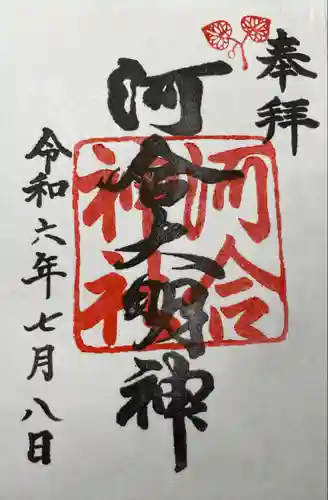 奉拝
河合大明神
河合
神社
令和六年七月八日